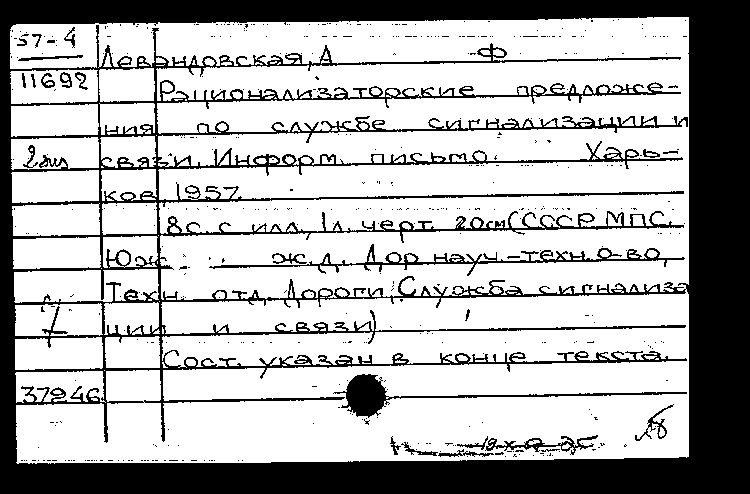 57-4
Левандовская, А Ф
11692
Рационализаторские предложе-
ния по службе сигнализации и
2 экз связи. Информ. письмо. Харь-
ков, 1957.
8с. с илл., 1л. черт. 20см (СССР. МПС.
Юж. ж.д. Дор науч.-техн. о-во,
Техн. отд. Дороги, Служба сигнализа
ции и связи)
Сост. указан в конце текста.
37246